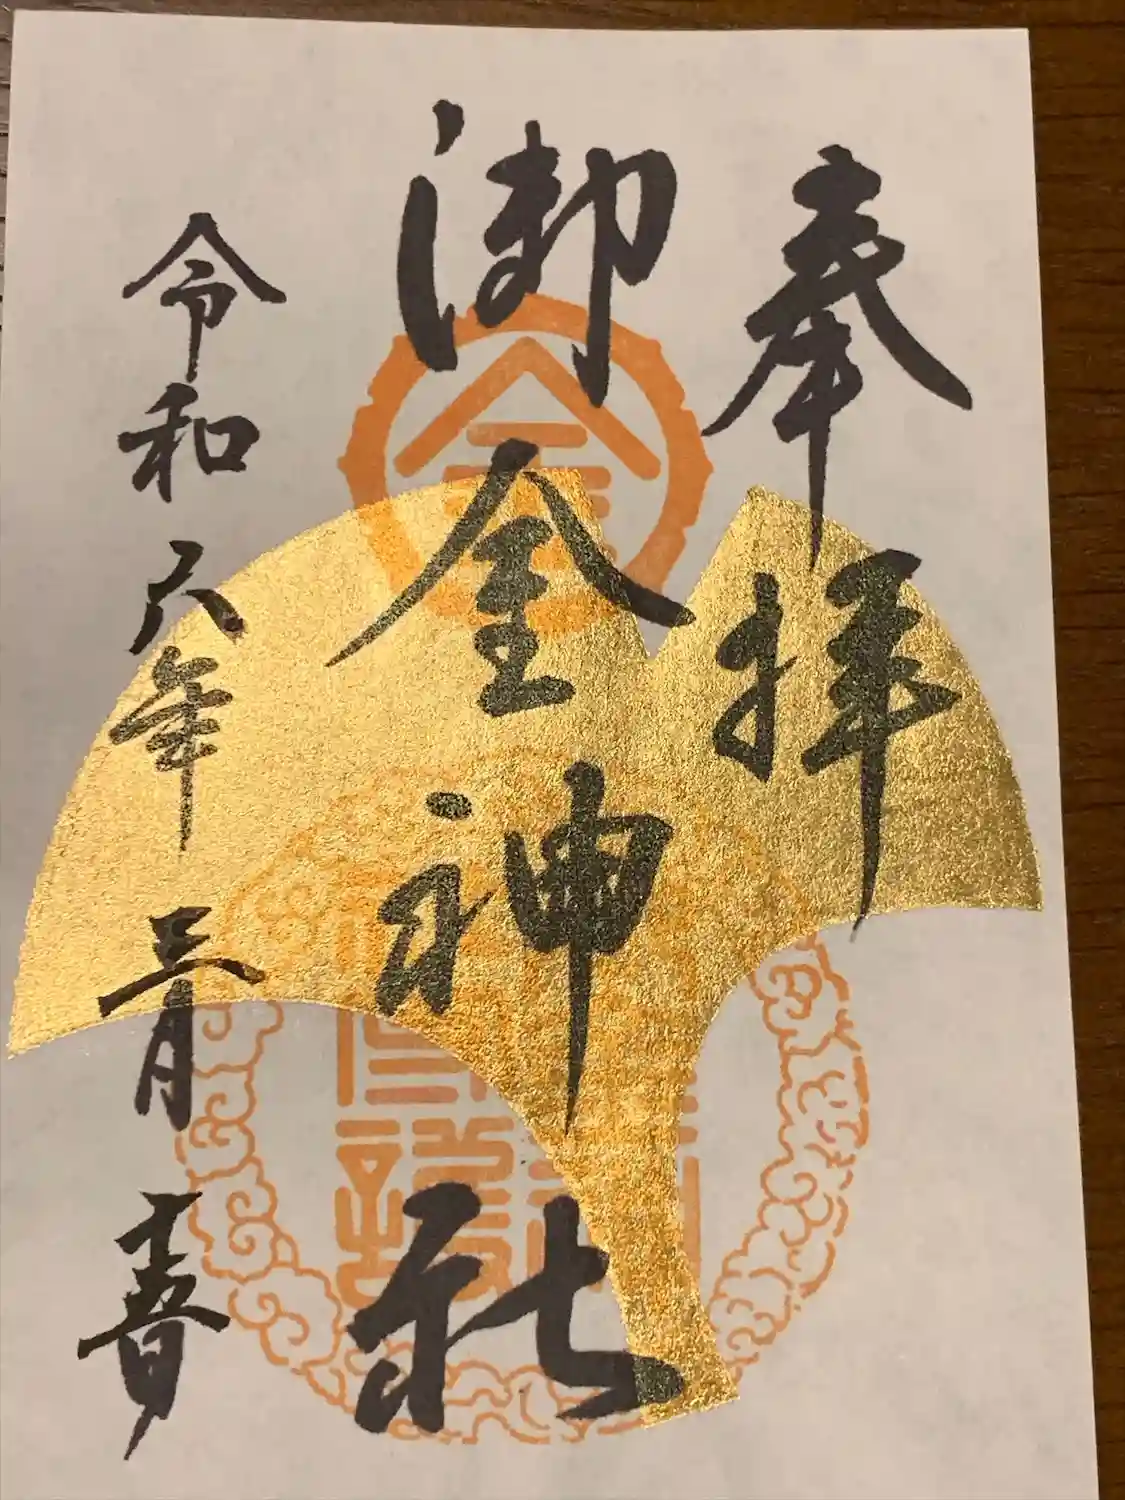 奉拝
御金神社
令和六年三月十五日
金